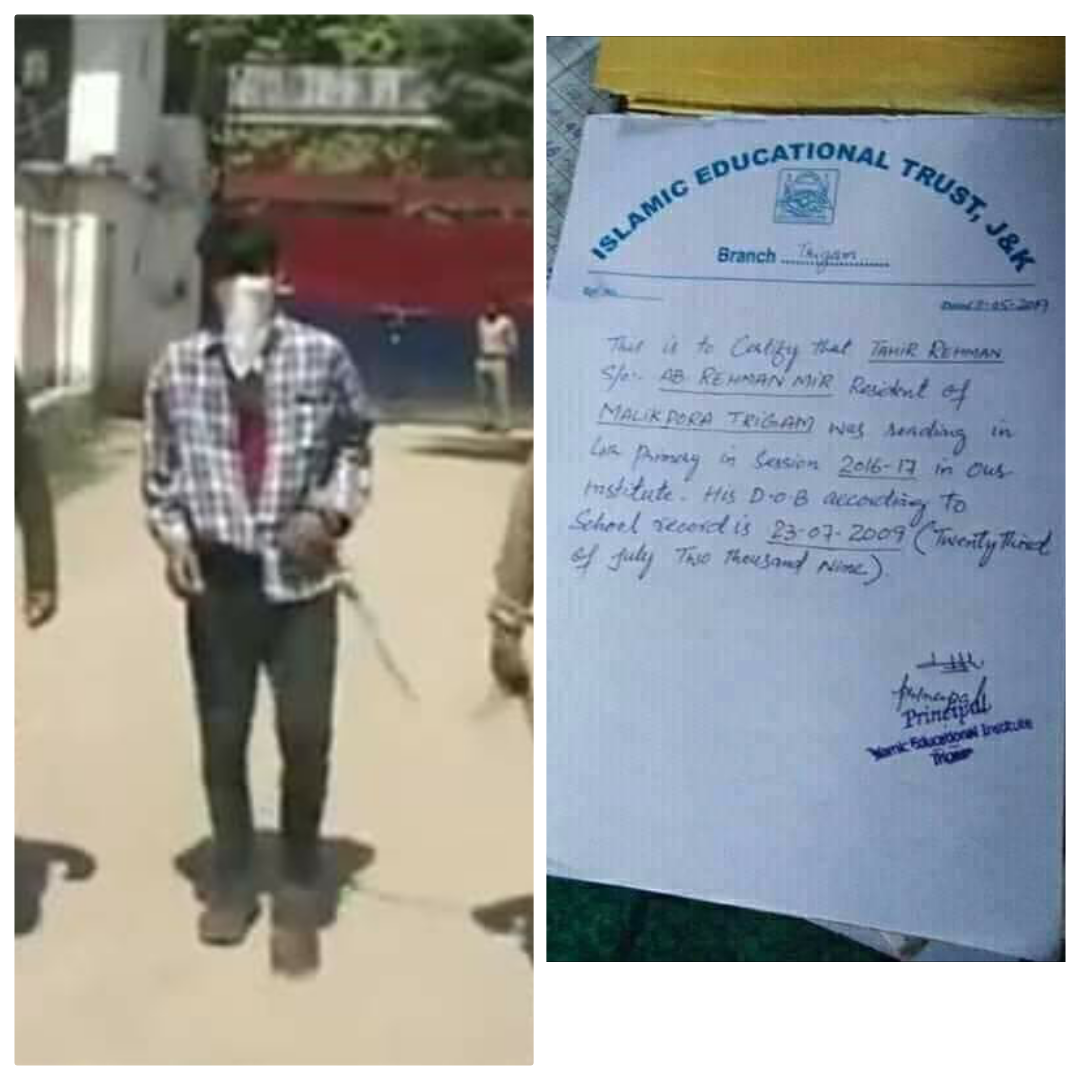 ISLAMIC EDUCATIONAL TRUST, J&K
Branch Trigam
Ref. No.
Dated -05-2019
This is to Certify that TAHIR REHMAN
S/o:- AB REHMAN MIR Resident of
MALIKPORA TRIGAM was reading in
Primary in Session 2016-17 in our
institute. His D.O.B according to
School record is 23-07-2009 (Twenty third
of July Two thousand Nine).
Principal
Principal
Islamic Educational Institute
Trigam